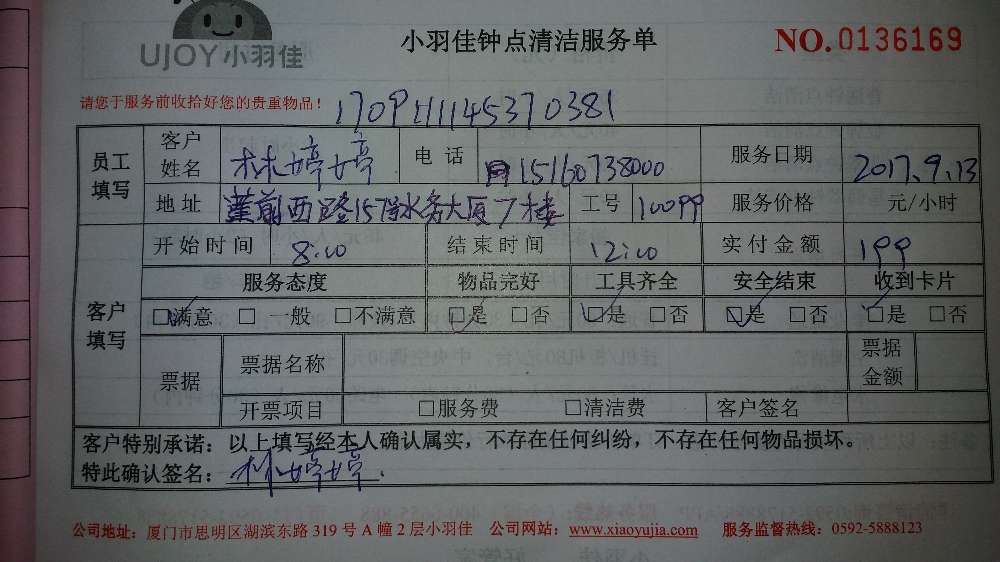 UJOY小羽佳
小羽佳钟点清洁服务单
NO.0136169
请您于服务前收拾好您的贵重物品！
170911114537038​1
员工填写 客户姓名 林婷婷 电话 15160738000 服务日期 2017.9.13
地址 莲前西路157号水务大厦7楼 工号 10099 服务价格 元/小时
开始时间 8:00 结束时间 12:00 实付金额 199
客户填写 服务态度 物品完好 工具齐全 安全结束 收到卡片
☑满意 □一般 □不满意 ☑是 □否 ☑是 □否 ☑是 □否 ☑是 □否
票据 票据名称 票据金额
开票项目 □服务费 □清洁费 客户签名
客户特别承诺：以上填写经本人确认属实，不存在任何纠纷，不存在任何物品损坏。
特此确认签名：林婷婷
公司地址：厦门市思明区湖滨东路319号A幢2层小羽佳 公司网站：www.xiaoyujia.com 服务监督热线：0592-5888123